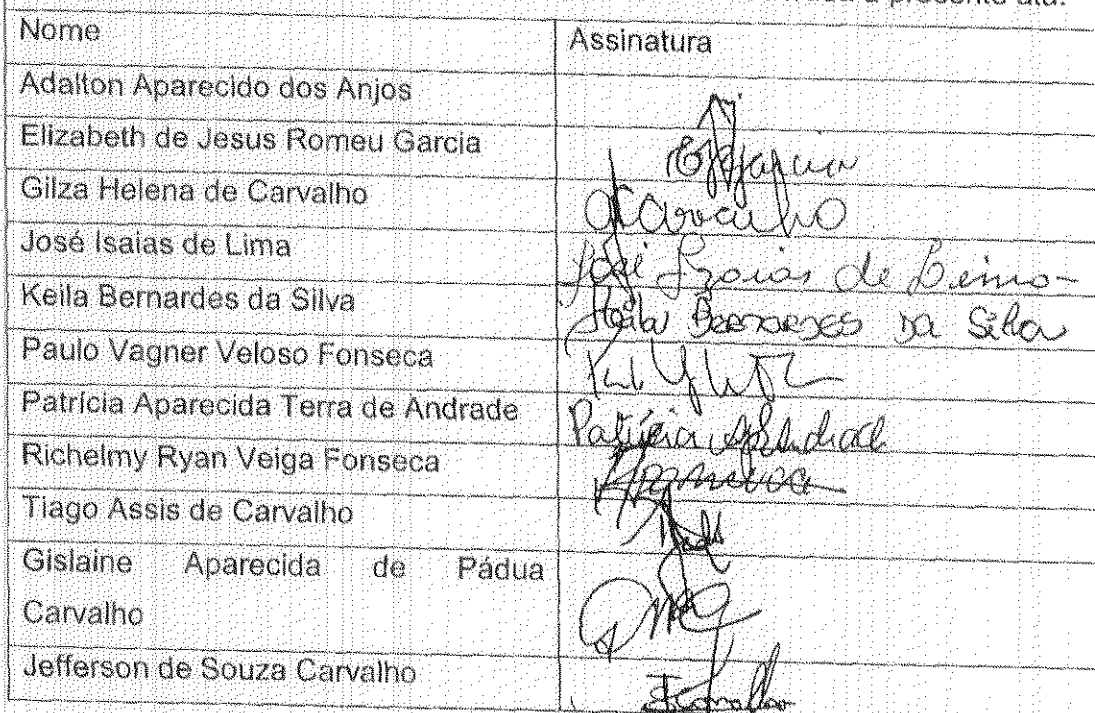 a presente ata.
Nome Assinatura
Adailton Aparecido dos Anjos
Elizabeth de Jesus Romeu Garcia
Gilza Helena de Carvalho GCarvalho
José Isaias de Lima José Izaias de Lima
Keila Bernardes da Silva Keila Bernardes da Silva
Paulo Vagner Veloso Fonseca
Patrícia Aparecida Terra de Andrade Patrícia Andrade
Richelmy Ryan Veiga Fonseca
Tiago Assis de Carvalho
Gislaine Aparecida de Pádua
Carvalho
Jefferson de Souza Carvalho